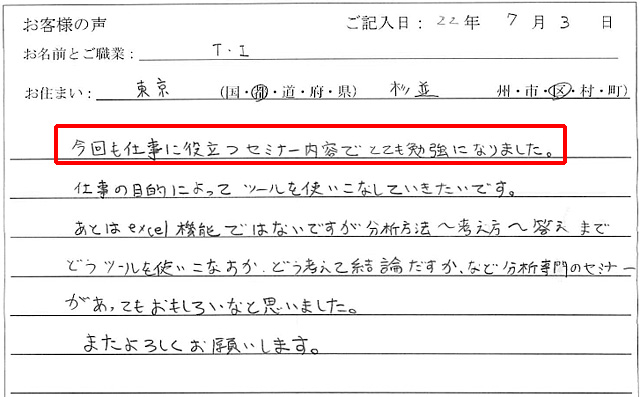 お客様の声 ご記入日：22年 7月 3日
お名前とご職業： T・I
お住まい： 東京 (国・都・道・府・県) 杉並 州・市・区・村・町)
今回も仕事に役立つセミナー内容でとても勉強になりました。
仕事の目的によって ツールを使いこなしていきたいです。
あとはexcel機能ではないですが分析方法〜考え方へ答えまで
どうツールを使いこなおか、どう考えて結論だすか、など分析専門のセミナー
があってもおもしろいなと思いました。
またよろしくお願いします。